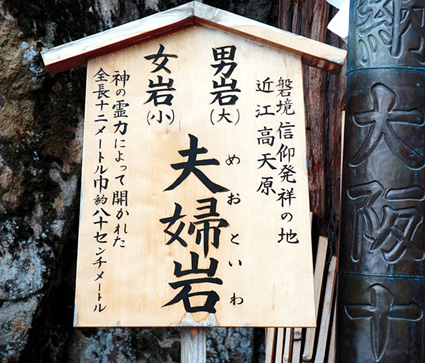 磐境信仰発祥の地
近江高天原
男岩(大)
女岩(小)
夫婦岩
めおといわ
神の霊力によって開かれた
全長十二メートル巾約八十センチメートル
大阪十